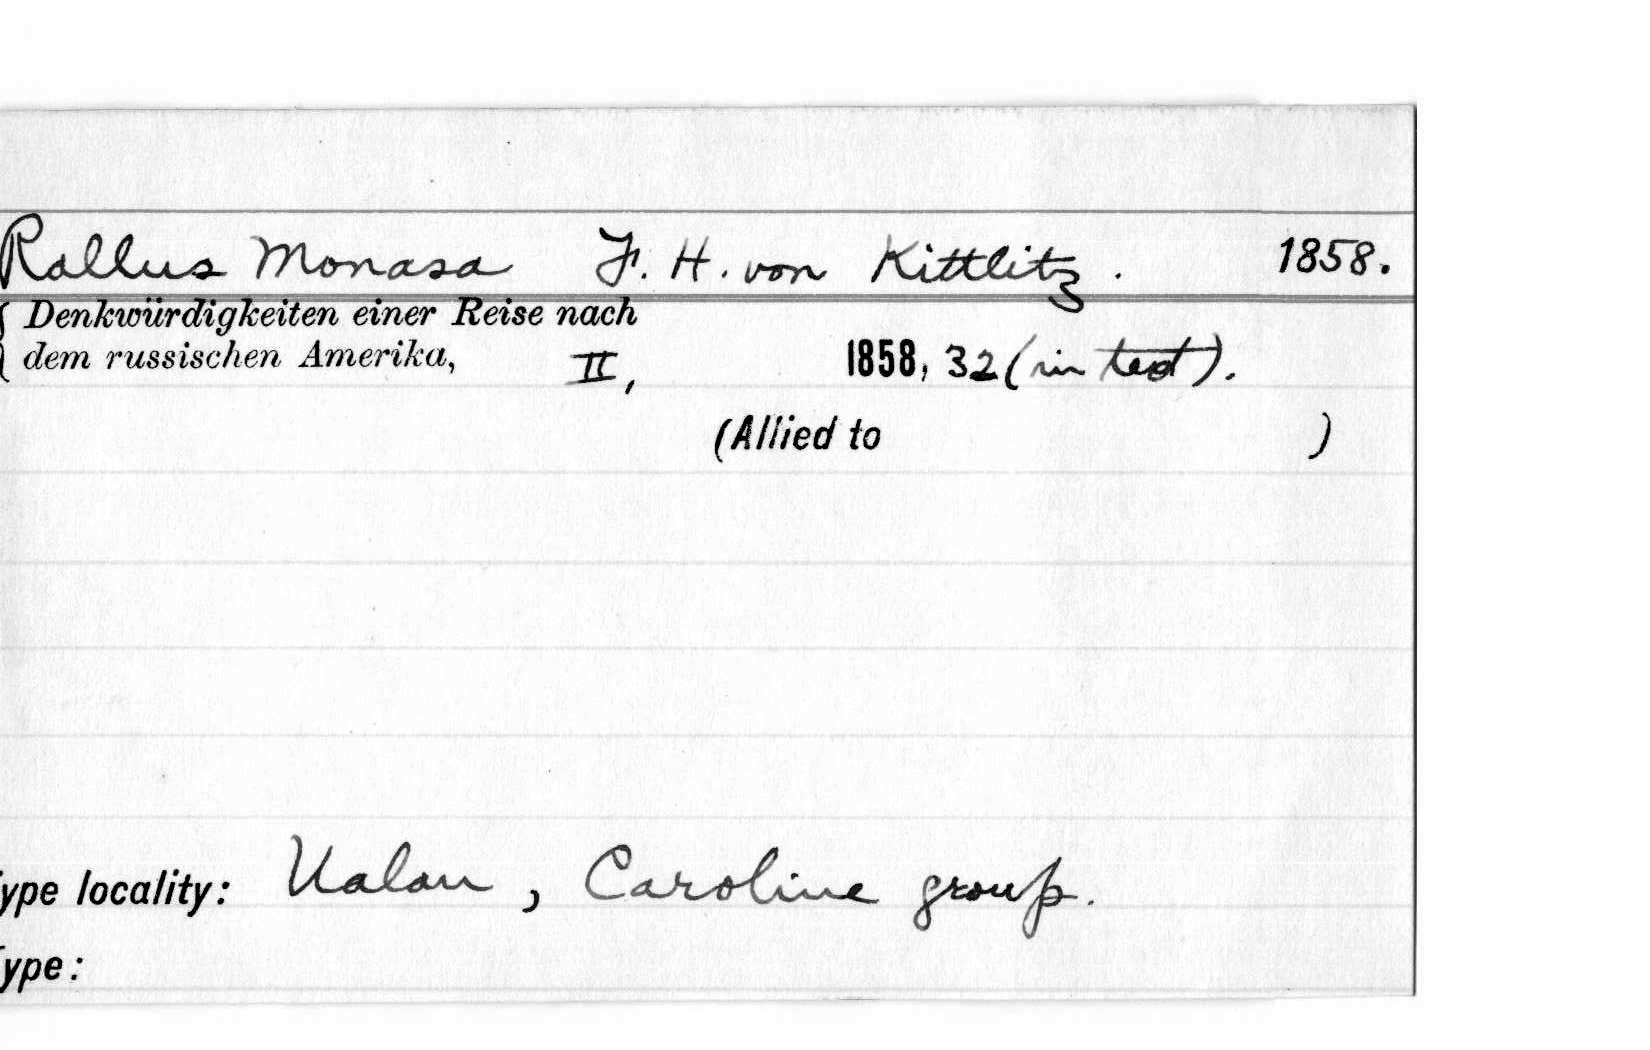 Rallus Monasa F. H. von Kittlitz. 1858.
Denkwürdigkeiten einer Reise nach
dem russischen Amerika, II, 1858, 32 (in text).
(Allied to )
ype locality: Ualan, Caroline group.
ype: